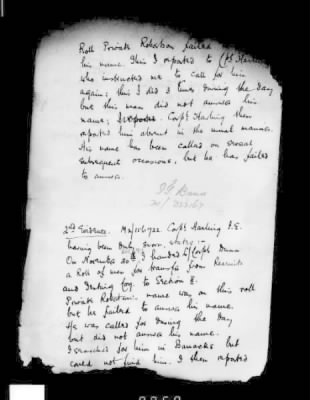 Roll Private Robertson failed
his name. This I reported to Cpl Harling
who instructed me to call for him
again; this I did 2 times during the Day
but this man did not answer his
name; Corpl Harling then
reported him absent in the usual manner.
His name has been called on several
subsequent occasions, but he has failed
to answer.
Dunn
2nd Evidence. Corpl Harling F.E.
having been Duly sworn, states :-
On November 20th I handed Corpl Dunn
a Roll of men for transfer from Recruits
and Training Coy. to Section
Private Robertson name was on this roll
but he failed to answer his name.
He was called for During the Day
but did not answer his name.
I searched for him in Barracks but
could not find him. I then reported